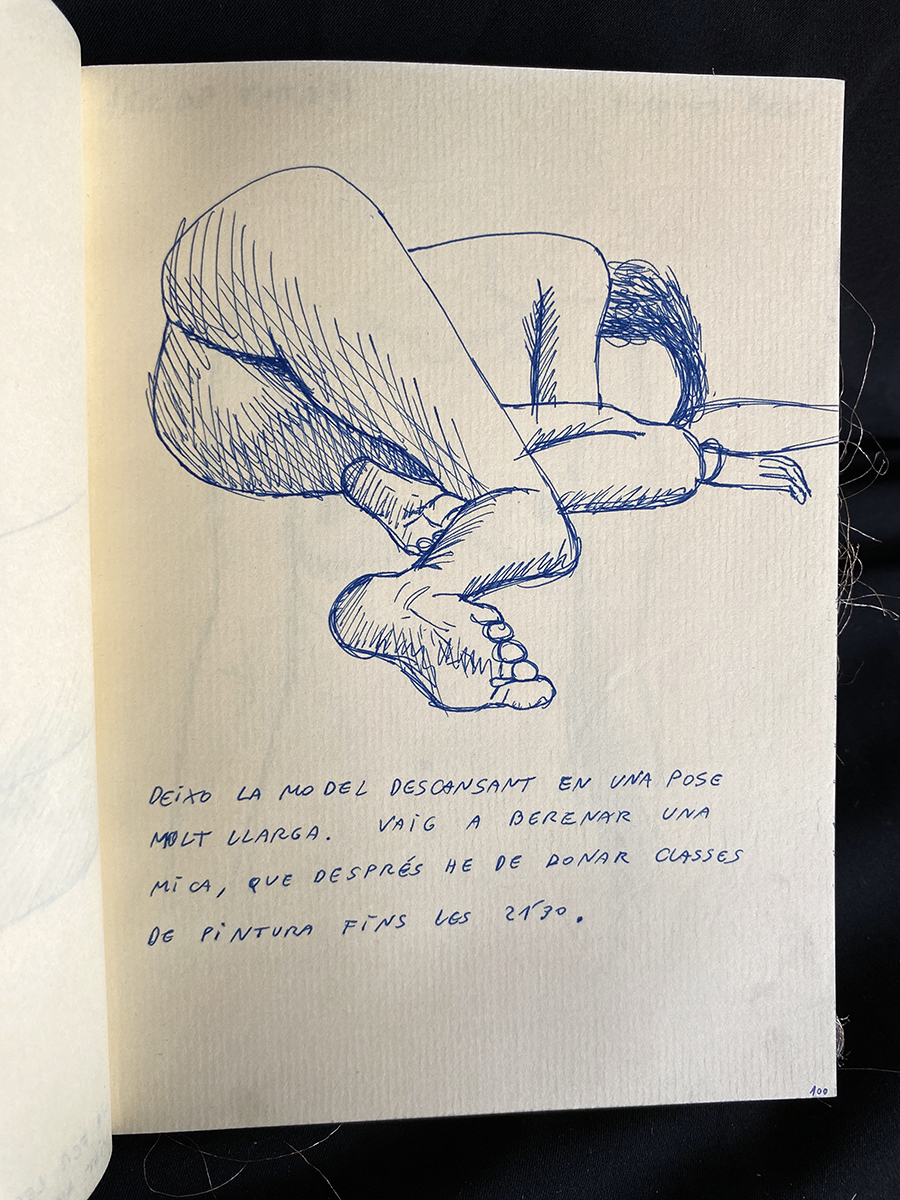 DEIXO LA MODEL DESCANSANT EN UNA POSE
MOLT LLARGA. VAIG A BERENAR UNA
MICA, QUE DESPRÉS HE DE DONAR CLASSES
DE PINTURA FINS LES 21'30.
100